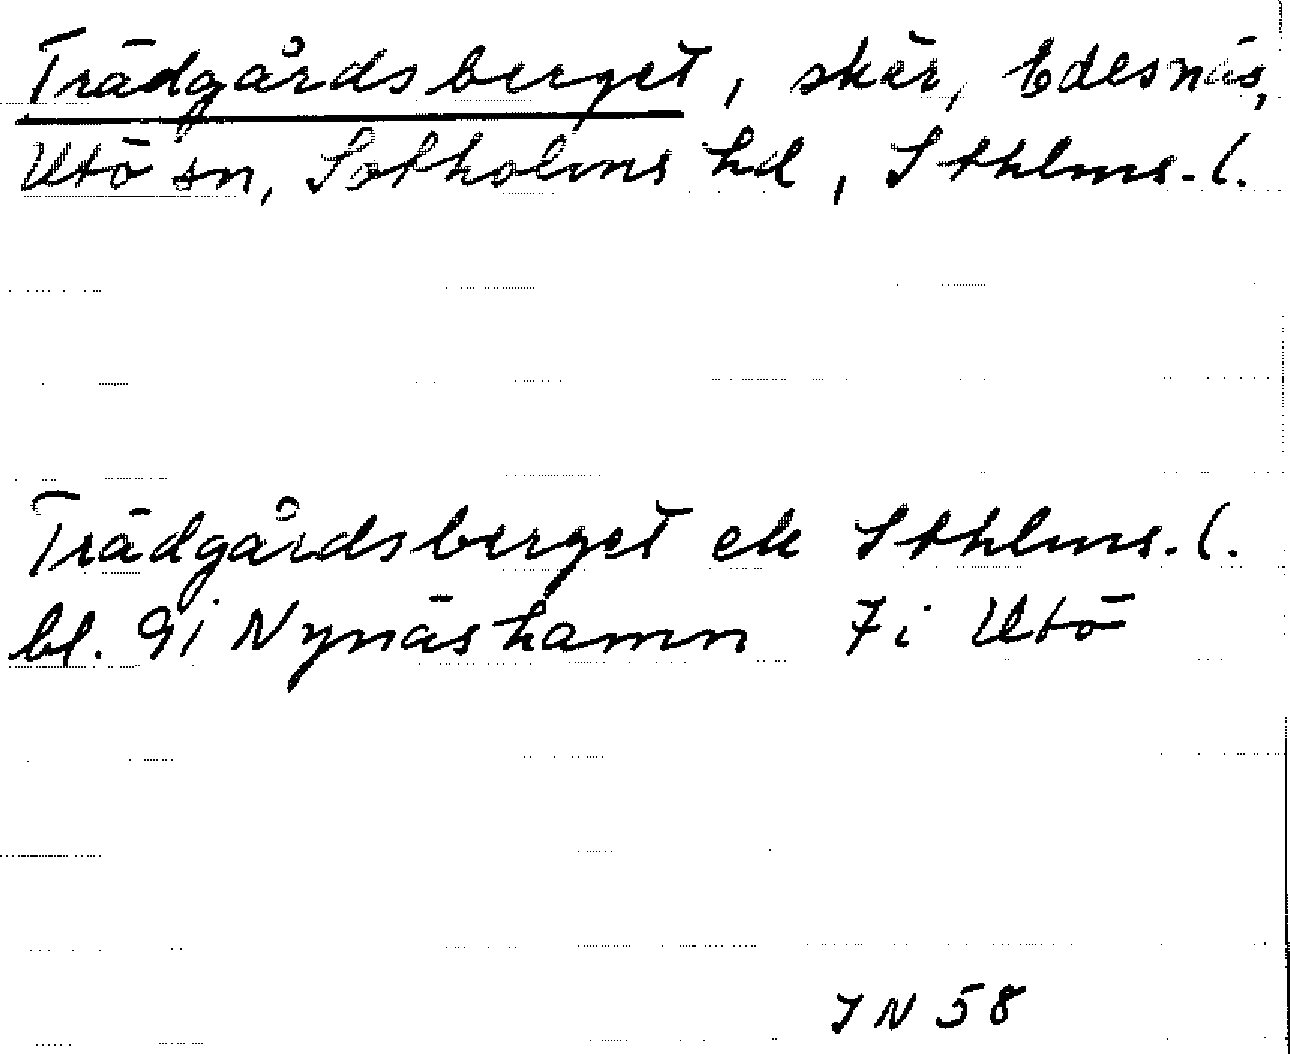 Trädgårdsberget, skär, Edesnäs,
Utö sn, Sotholms hd, Sthlms. l.
Trädgårdsberget ek Sthlms. l.
bl. 91 Nynäshamn 7i Utö
IN 58